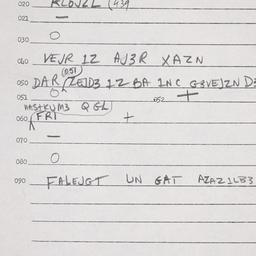 020 RLOVZL (439
021 —
030 O
040 VEJR 1Z AJ3R XAZN
(051)
050 DAR ZEJD3 1Z BA 1NC G3VEJZN D3
051 O 052 +
HASHKUM3 Q GL
060 (FRI +
070 —
080 O
090 FALEJGT UN GAT AZAZ1LB3